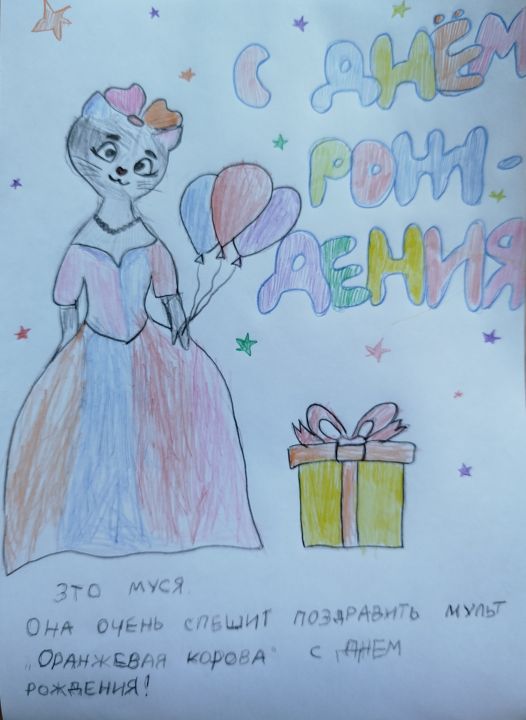 С ДНЁМ
РОЖ-
ДЕНИЯ
ЭТО МУСЯ.
ОНА ОЧЕНЬ СПЕШИТ ПОЗДРАВИТЬ МУЛЬТ
„ОРАНЖЕВАЯ КОРОВА" С ДНЕМ
РОЖДЕНИЯ!